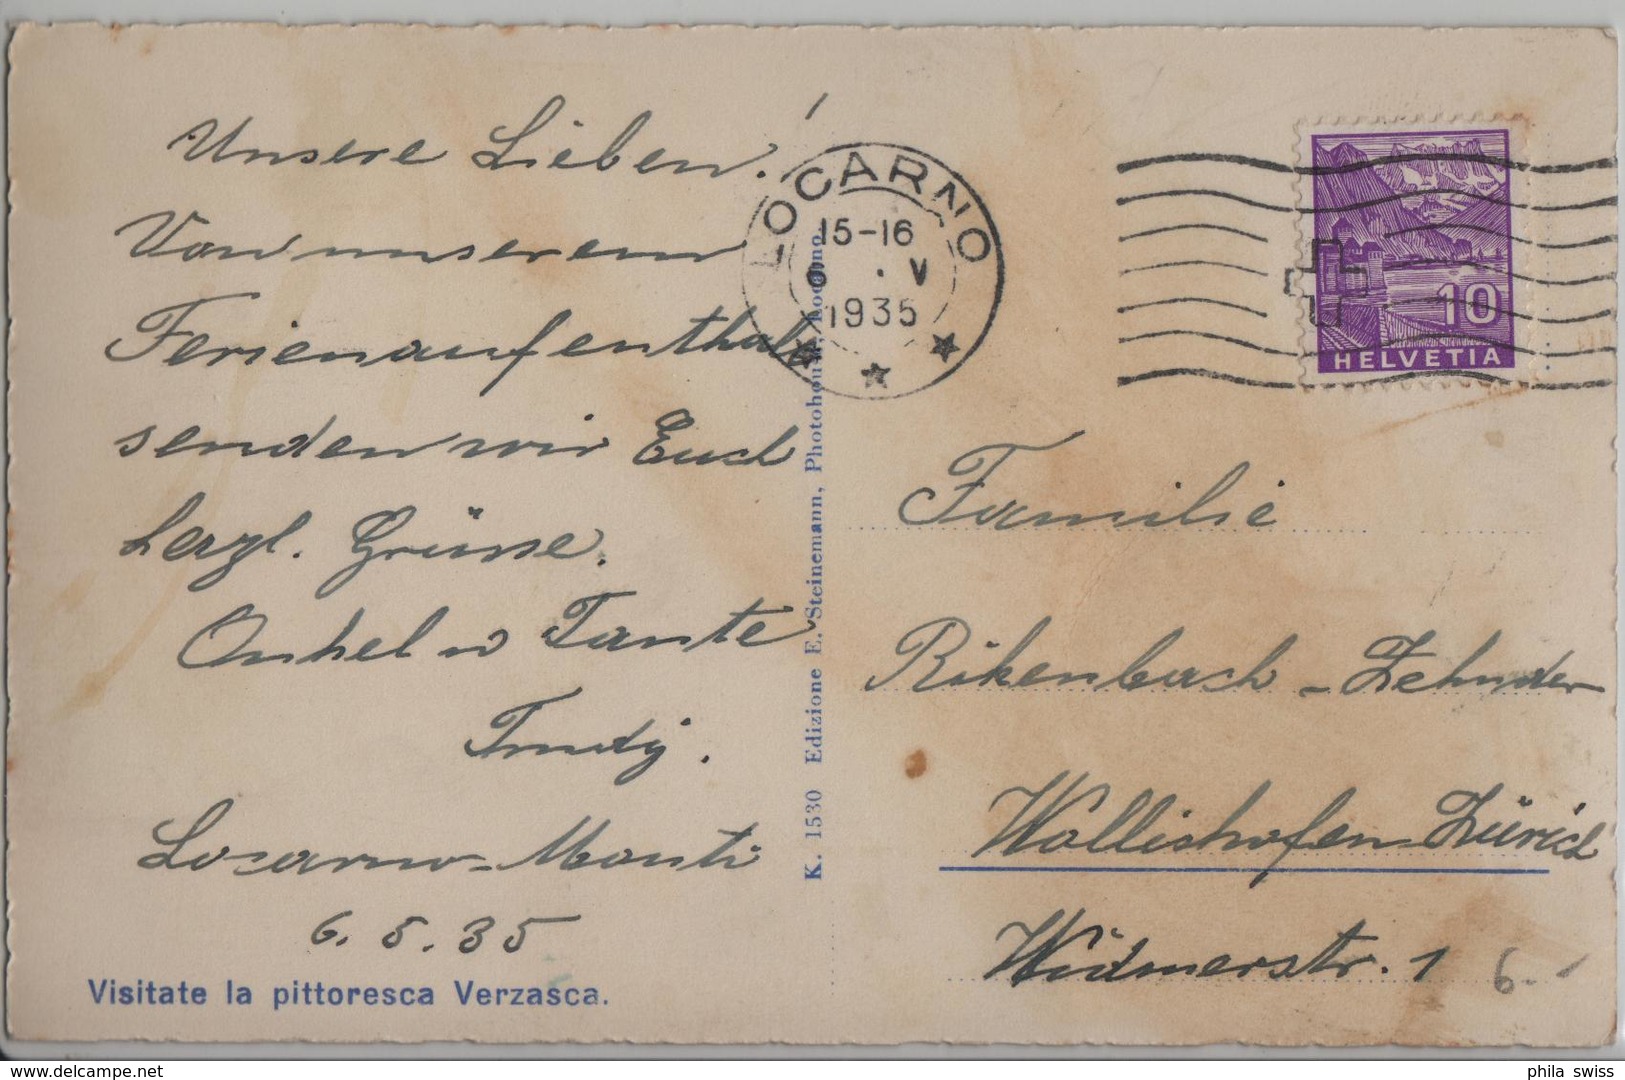 Unsere Lieben!
Von unserem
Ferienaufenthalt
senden wir Euch
herzl. Grüsse.
Onkel u Tante
Trudy.
Locarno-Monti
6.5.35
Visitate la pittoresca Verzasca.
K. 1530 Edizione E. Steinemann, Photohouse, Locarno.
LOCARNO
15-16
V
1935
10
HELVETIA
Familie
Rikenbach-Zehnder
Wollishofen-Zürich
Widmerstr. 1
6.-
delcampe.net
phila_swiss